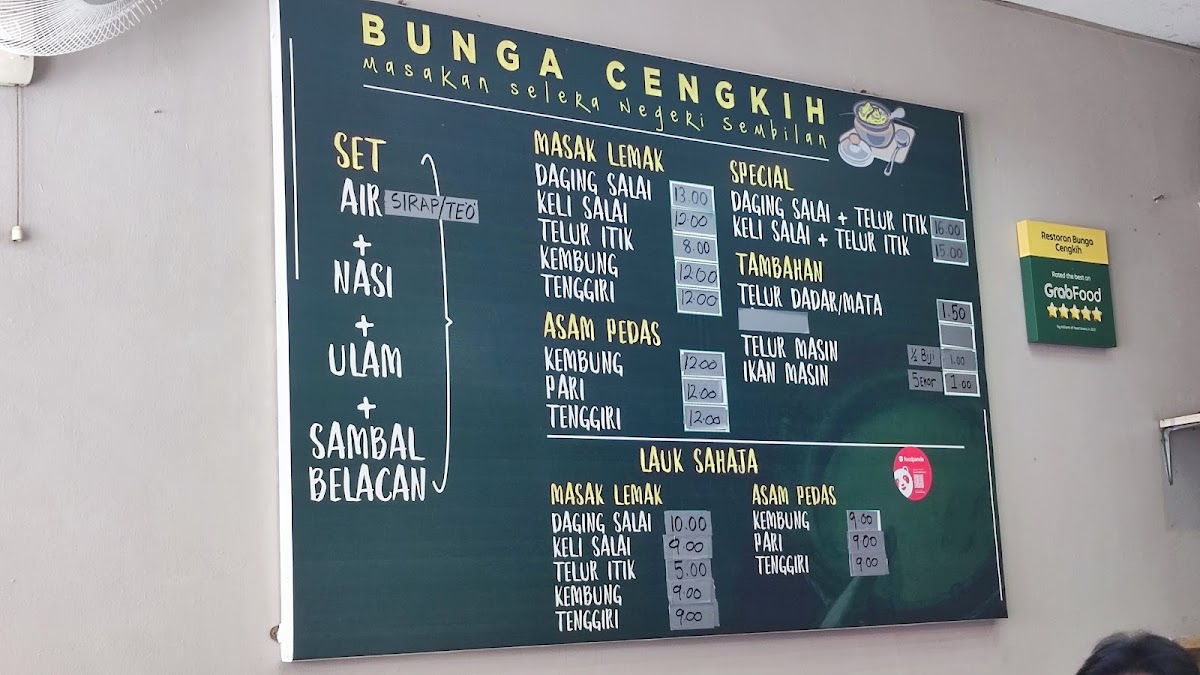 BUNGA CENGKIH
Masakan selera Negeri Sembilan
SET
AIR SIRAP/TEO
+
NASI
+
ULAM
+
SAMBAL
BELACAN
MASAK LEMAK
DAGING SALAI 13.00
KELI SALAI 12.00
TELUR ITIK 8.00
KEMBUNG 12.00
TENGGIRI 12.00
ASAM PEDAS
KEMBUNG 12.00
PARI 12.00
TENGGIRI 12.00
SPECIAL
DAGING SALAI + TELUR ITIK 16.00
KELI SALAI + TELUR ITIK 15.00
TAMBAHAN
TELUR DADAR/MATA 1.50
TELUR MASIN ½ Biji 1.00
IKAN MASIN 5 Ekor 1.00
LAUK SAHAJA
MASAK LEMAK
DAGING SALAI 10.00
KELI SALAI 9.00
TELUR ITIK 5.00
KEMBUNG 9.00
TENGGIRI 9.00
ASAM PEDAS
KEMBUNG 9.00
PARI 9.00
TENGGIRI 9.00
foodpanda
Restoran Bunga
Cengkih
Rated the best on
GrabFood